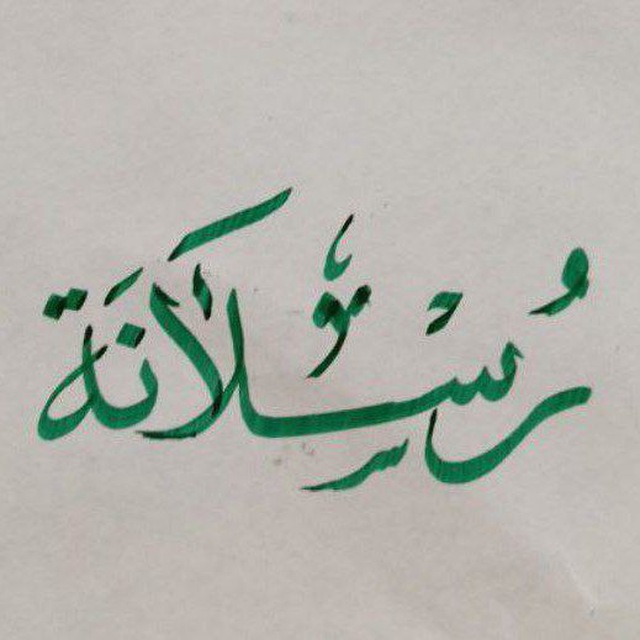 رُسْلَانَة